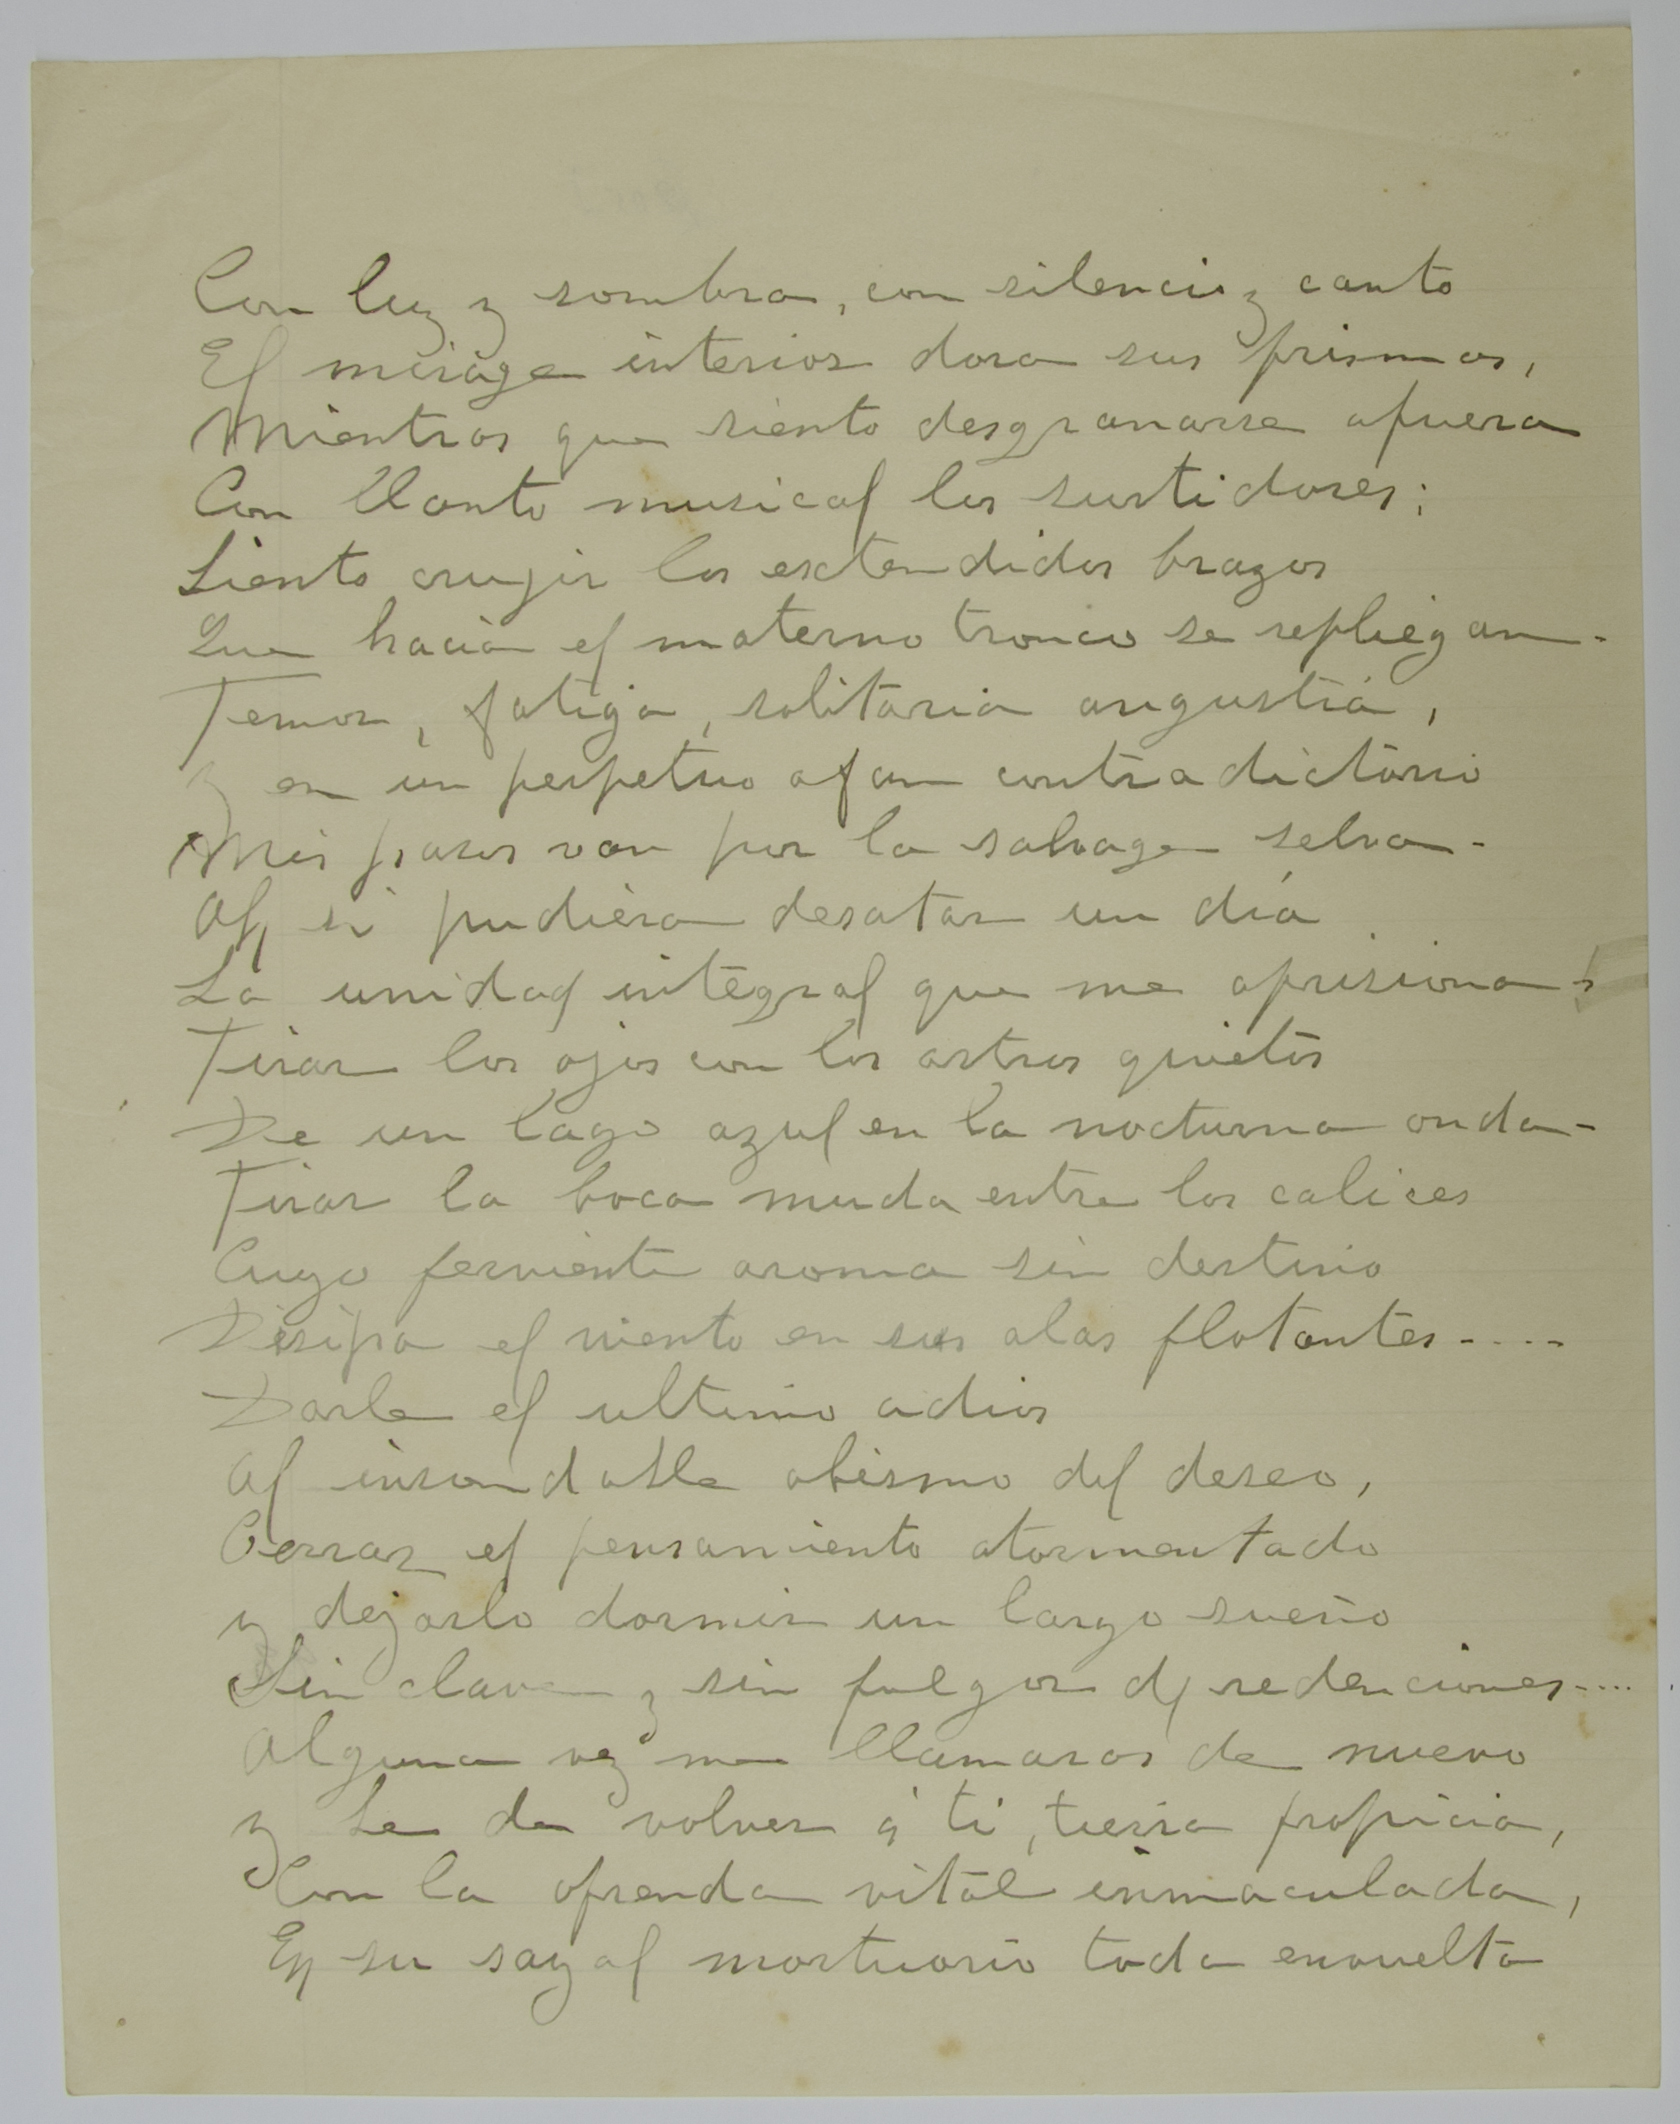 Con luz y sombra, con silencio y canto
El mirage interior dora sus prismas,
Mientras que siento desgranarse afuera
Con llanto musical los surtidores;
Siento crujir los extendidos brazos
Que hacia el materno tronco se repliegan -
Temor, fatiga, solitaria angustia,
y en un perpetuo afan contradictorio
Mis pasos van por la salvage selva -
Ah, si pudiera desatar un día
La unidad integral que me aprisiona -
Tirar los ojos con los astros quietos
De un lago azul en la nocturna onda -
Tirar la boca muda entre los calices
Cuyo ferviente aroma sin destino
Disipa el viento en sus alas flotantes ----
Darle el ultimo adios
Al insondable abismo del deseo,
Cerrar el pensamiento atormentado
y dejarlo dormir un largo sueño
Sin clave y sin fulgor de redenciones ....
Alguna vez me llamaras de nuevo
y he de volver á ti, tierra propicia,
Con la ofrenda vital inmaculada,
En su sayal mortuorio toda envuelta